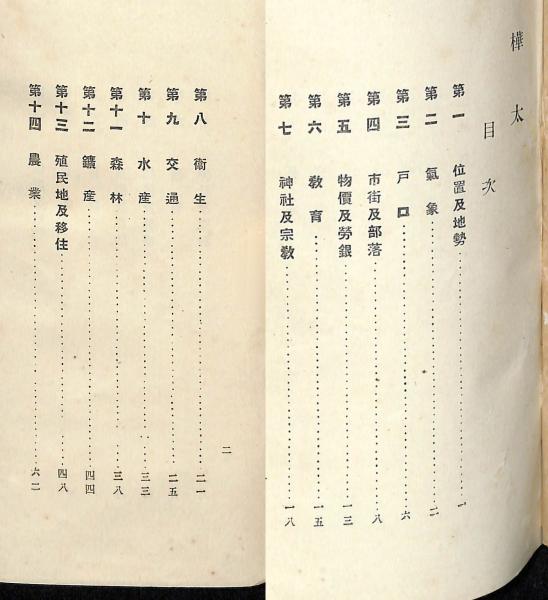 樺太
目次
第一 位置及地勢……一
第二 氣象……二
第三 戸口……六
第四 市街及部落……八
第五 物價及勞銀……一三
第六 敎育……一五
第七 神社及宗敎……一八
二
第八 衞生……二一
第九 交通……二五
第十 水産……三三
第十一 森林……三八
第十二 鑛産……四四
第十三 殖民地及移住……四八
第十四 農業……六二